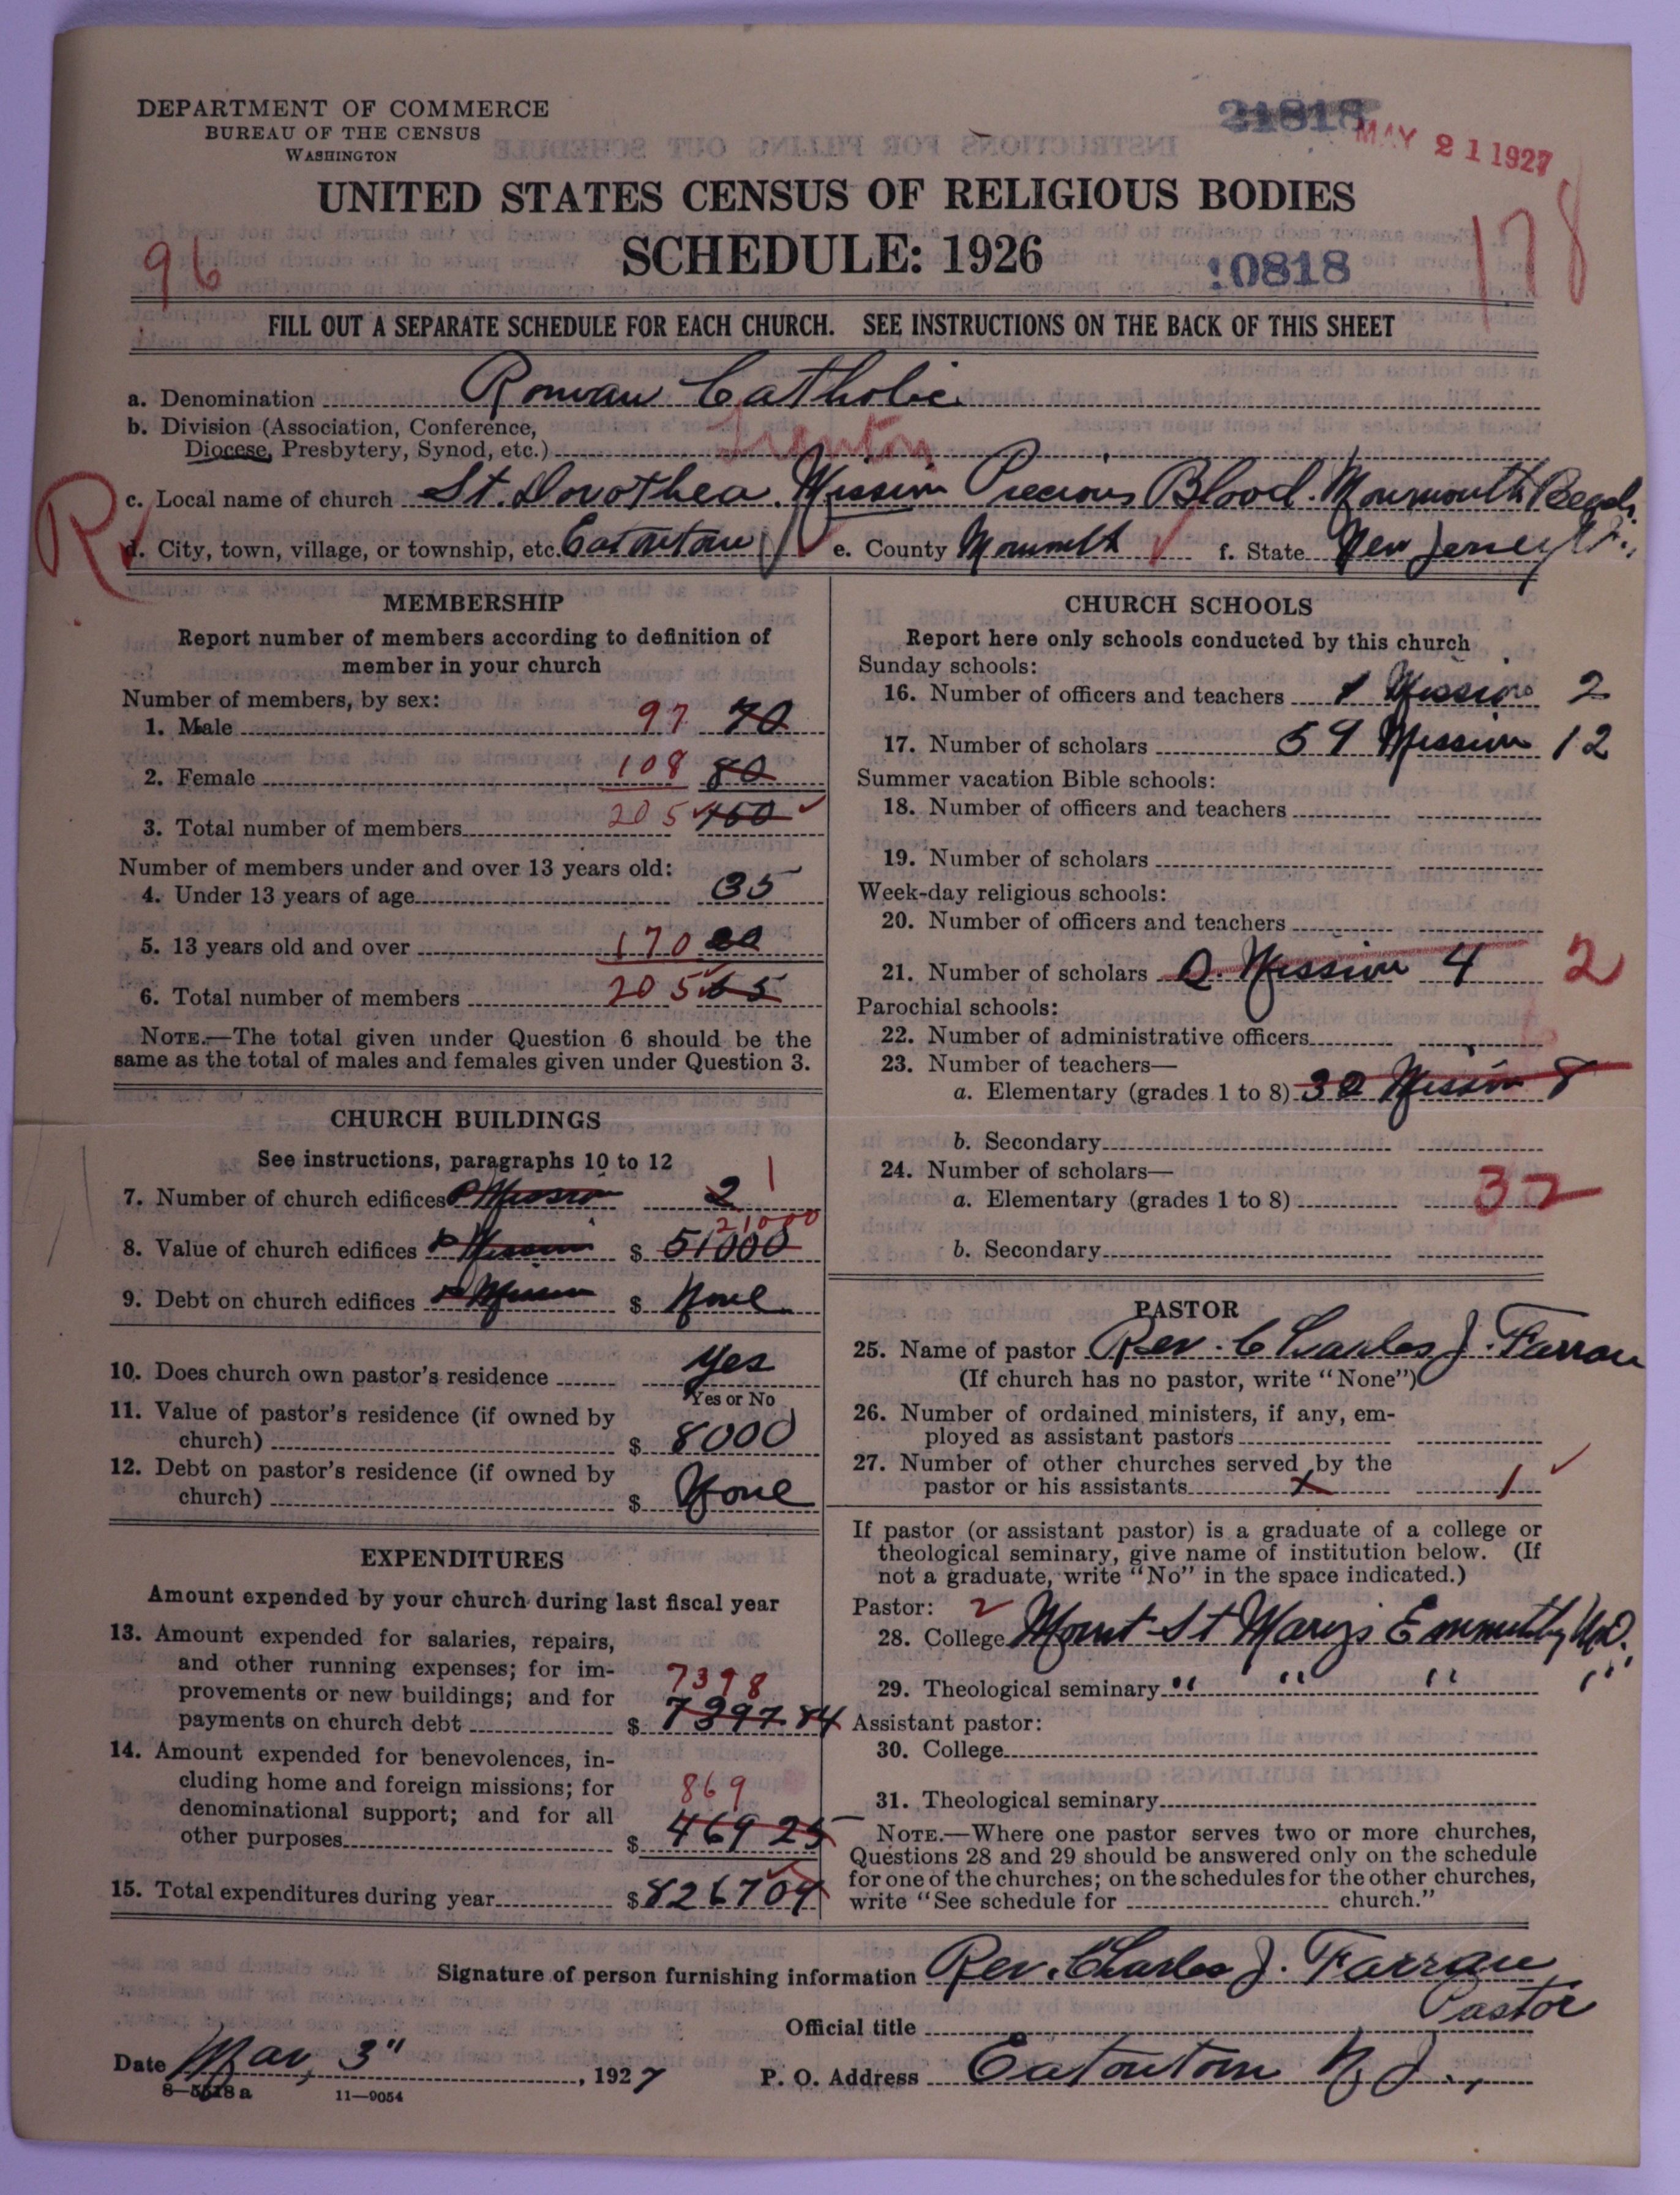 DEPARTMENT OF COMMERCE
BUREAU OF THE CENSUS
WASHINGTON
21818
MAY 21 1927
UNITED STATES CENSUS OF RELIGIOUS BODIES
SCHEDULE: 1926
96
10818
178
FILL OUT A SEPARATE SCHEDULE FOR EACH CHURCH. SEE INSTRUCTIONS ON THE BACK OF THIS SHEET
a. Denomination Roman Catholic
b. Division (Association, Conference,
Diocese, Presbytery, Synod, etc.) Trenton
R
c. Local name of church St. Dorothea. Mission Precious Blood. Monmouth Beach.
d. City, town, village, or township, etc. Eatontown e. County Monmouth f. State New Jersey
MEMBERSHIP
Report number of members according to definition of
member in your church
Number of members, by sex:
1. Male 97 70
2. Female 108 80
3. Total number of members 205 160
Number of members under and over 13 years old:
4. Under 13 years of age 35
5. 13 years old and over 170
6. Total number of members 205 65
NOTE.—The total given under Question 6 should be the
same as the total of males and females given under Question 3.
CHURCH BUILDINGS
See instructions, paragraphs 10 to 12
7. Number of church edifices Mission 2 1
8. Value of church edifices Mission $ 51000 21000
9. Debt on church edifices Mission $ None
10. Does church own pastor's residence Yes
Yes or No
11. Value of pastor's residence (if owned by
church) $ 8000
12. Debt on pastor's residence (if owned by
church) $ None
EXPENDITURES
Amount expended by your church during last fiscal year
13. Amount expended for salaries, repairs,
and other running expenses; for im-
provements or new buildings; and for 7398
payments on church debt $ 7397 84
14. Amount expended for benevolences, in-
cluding home and foreign missions; for 869
denominational support; and for all
other purposes $ 469 25
15. Total expenditures during year $ 8267 04
CHURCH SCHOOLS
Report here only schools conducted by this church
Sunday schools:
16. Number of officers and teachers 1 Mission 2
17. Number of scholars 59 Mission 12
Summer vacation Bible schools:
18. Number of officers and teachers
19. Number of scholars
Week-day religious schools:
20. Number of officers and teachers
21. Number of scholars Mission 4 2
Parochial schools:
22. Number of administrative officers
23. Number of teachers—
a. Elementary (grades 1 to 8) 32 Mission 8
b. Secondary
24. Number of scholars—
a. Elementary (grades 1 to 8) 32
b. Secondary
PASTOR
25. Name of pastor Rev. Charles J. Farran
(If church has no pastor, write "None")
26. Number of ordained ministers, if any, em-
ployed as assistant pastors
27. Number of other churches served by the
pastor or his assistants x 1
If pastor (or assistant pastor) is a graduate of a college or
theological seminary, give name of institution below. (If
not a graduate, write "No" in the space indicated.)
Pastor: 2
28. College Mount St Mary's Emmittsby Md.
29. Theological seminary " " " "
Assistant pastor:
30. College
31. Theological seminary
NOTE.—Where one pastor serves two or more churches,
Questions 28 and 29 should be answered only on the schedule
for one of the churches; on the schedules for the other churches,
write "See schedule for church."
Signature of person furnishing information Rev. Charles J. Farran
Official title Pastor
Date Mar, 3", 1927 P. O. Address Eatontown N. J.
8—5518 a 11—9054